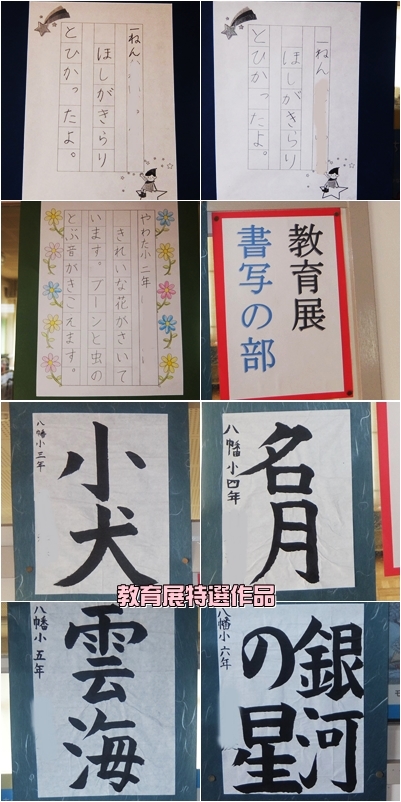 一ねん
ほしがきらり
とひかったよ。
一ねん
ほしがきらり
とひかったよ。
やわた小 二年
きれいな花がさいて
います。ブーンと虫の
とぶ音がきこえます。
教育展
書写の部
八幡小三年
小犬
八幡小四年
名月
教育展特選作品
八幡小五年
雲海
八幡小六年
銀河
の星